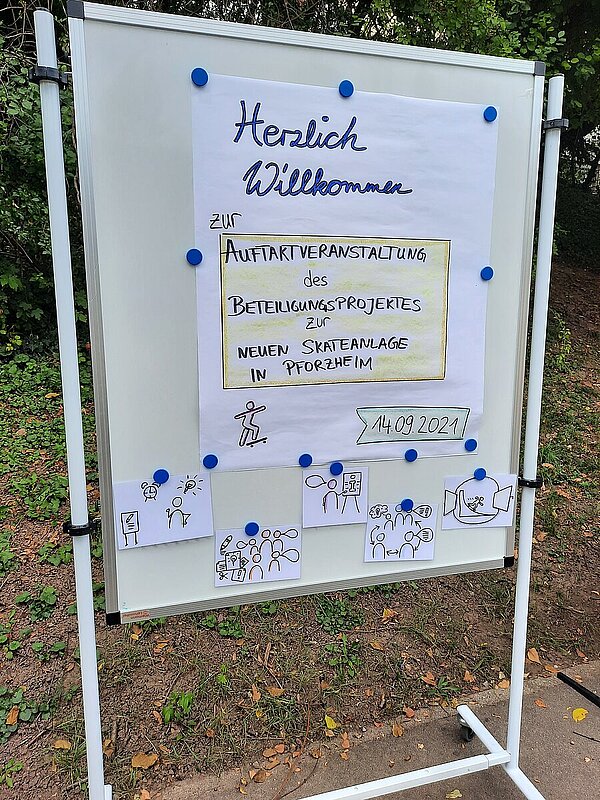 Herzlich
Willkommen
zur
AUFTARTVERANSTALTUNG
des
BETEILIGUNGSPROJEKTES
zur
NEUEN SKATEANLAGE
IN PFORZHEIM
14.09.2021